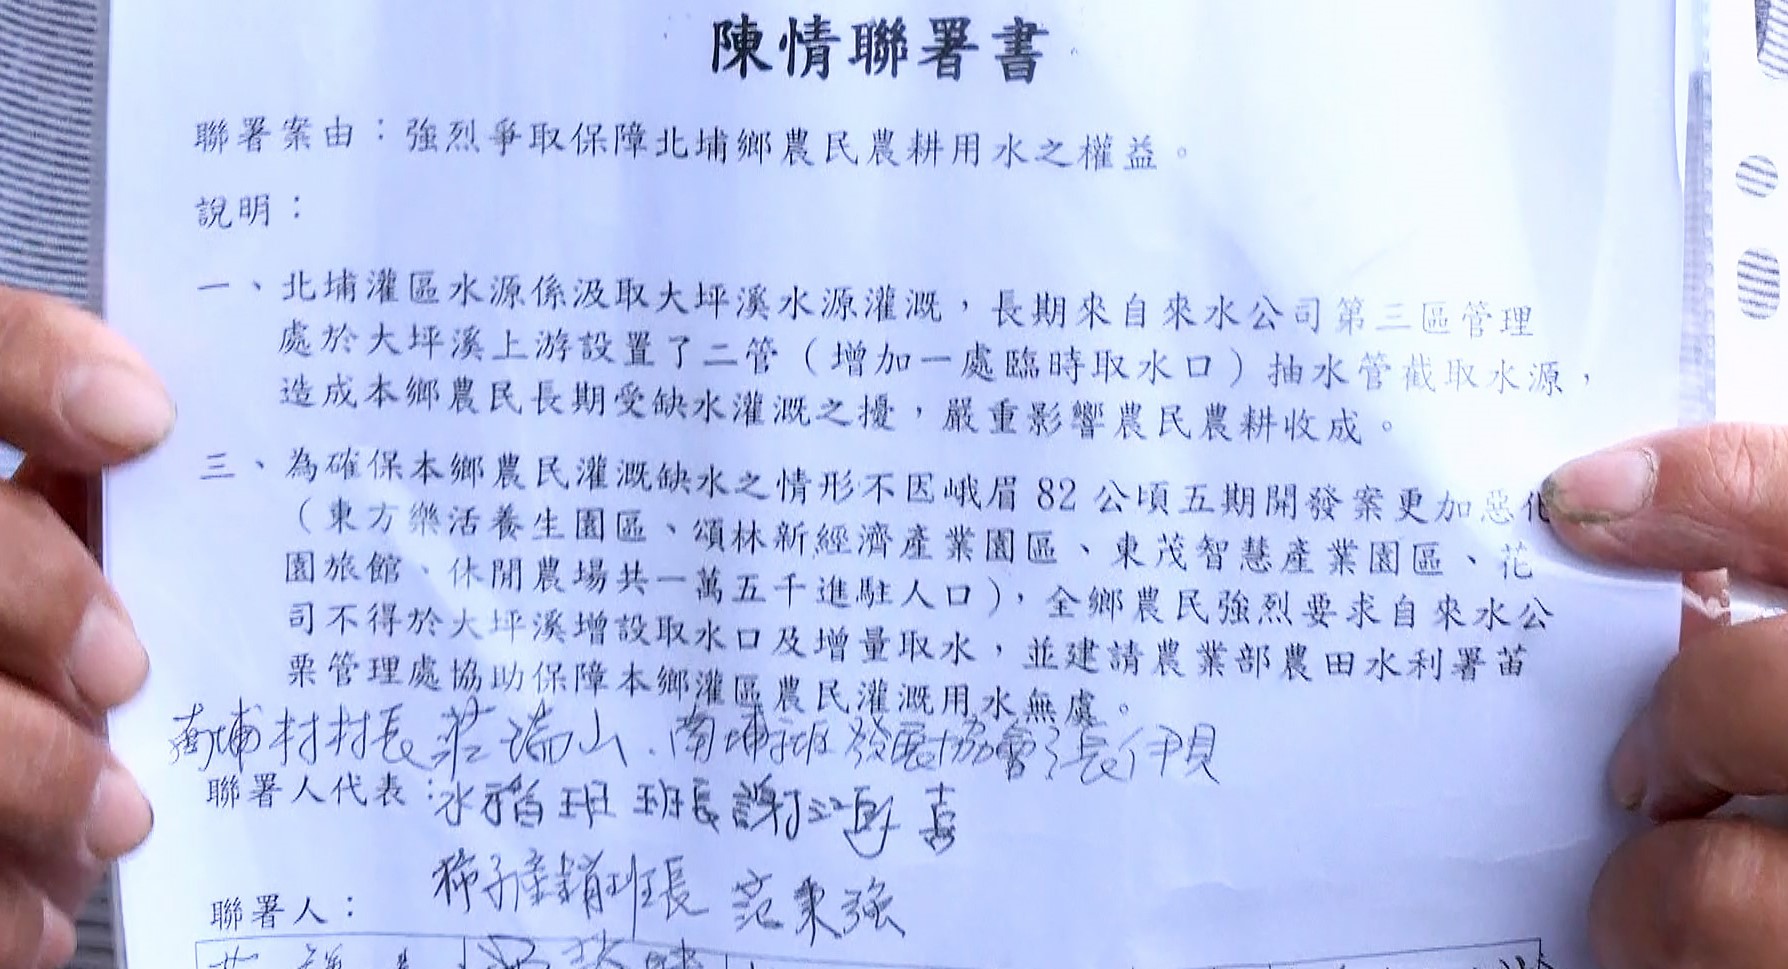 陳情聯署書
聯署案由：強烈爭取保障北埔鄉農民農耕用水之權益。
說明：
一、北埔灌區水源係汲取大坪溪水源灌溉，長期來自來水公司第三區管理
處於大坪溪上游設置了二管（增加一處臨時取水口）抽水管截取水源，
造成本鄉農民長期受缺水灌溉之擾，嚴重影響農民農耕收成。
三、為確保本鄉農民灌溉缺水之情形不因峨眉82公頃五期開發案更加惡化
（東方樂活養生園區、頌林新經濟產業園區、東茂智慧產業園區、花
園旅館、休閒農場共一萬五千進駐人口），全鄉農民強烈要求自來水公
司不得於大坪溪增設取水口及增量取水，並建請農業部農田水利署苗
栗管理處協助保障本鄉灌區農民灌溉用水無虞。
南埔村村長 莊瑞山、南埔社區發展協會 張伊貝
聯署人代表：水稻班班長謝 喜
柿子產銷班長 范秉強
聯署人：